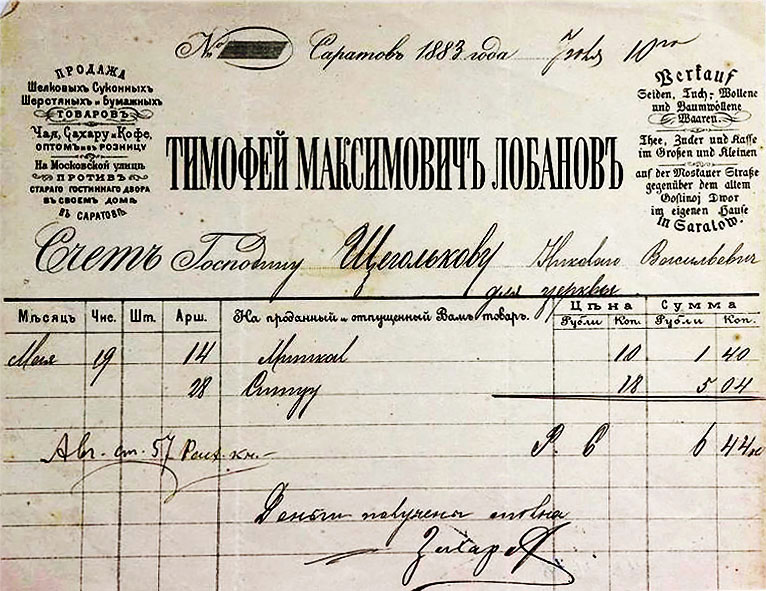 № Саратовъ 1883 года Июня 10го
ПРОДАЖА
Шелковыхъ Суконныхъ
Шерстяныхъ и бумажныхъ
ТОВАРОВЪ
Чая, Сахару и Кофе,
ОПТОМЪ и ВЪ РОЗНИЦУ
На Московской улицѣ
ПРОТИВЪ
СТАРАГО ГОСТИННАГО ДВОРА
ВЪ СВОЕМЪ ДОМѢ
ВЪ САРАТОВѢ
ТИМОФЕЙ МАКСИМОВИЧЪ ЛОБАНОВЪ
Verkauf
Seiden, Tuch, Wollene
und Baumwollene
Waaren.
Thee, Zuder und Kaffe
im Großen und Kleinen
auf der Moskauer Straße
gegenüber dem altem
Gostinoj Dwor
im eigenen Hause
in Saratow.
Счетъ Господину Щеголькову Николаю Васильевичу
для церквы
Мѣсяцъ Чис. Шт. Арш. На проданный и отпущенный Вамъ товаръ. Цѣна Сумма
Рубли Коп. Рубли Коп.
Мая 19 14 Миткаль 10 1 40
28 Ситцу 18 5 04
Авг. ст. 57 Расх. кн. Р. 6 6 44
Деньги получены сполна